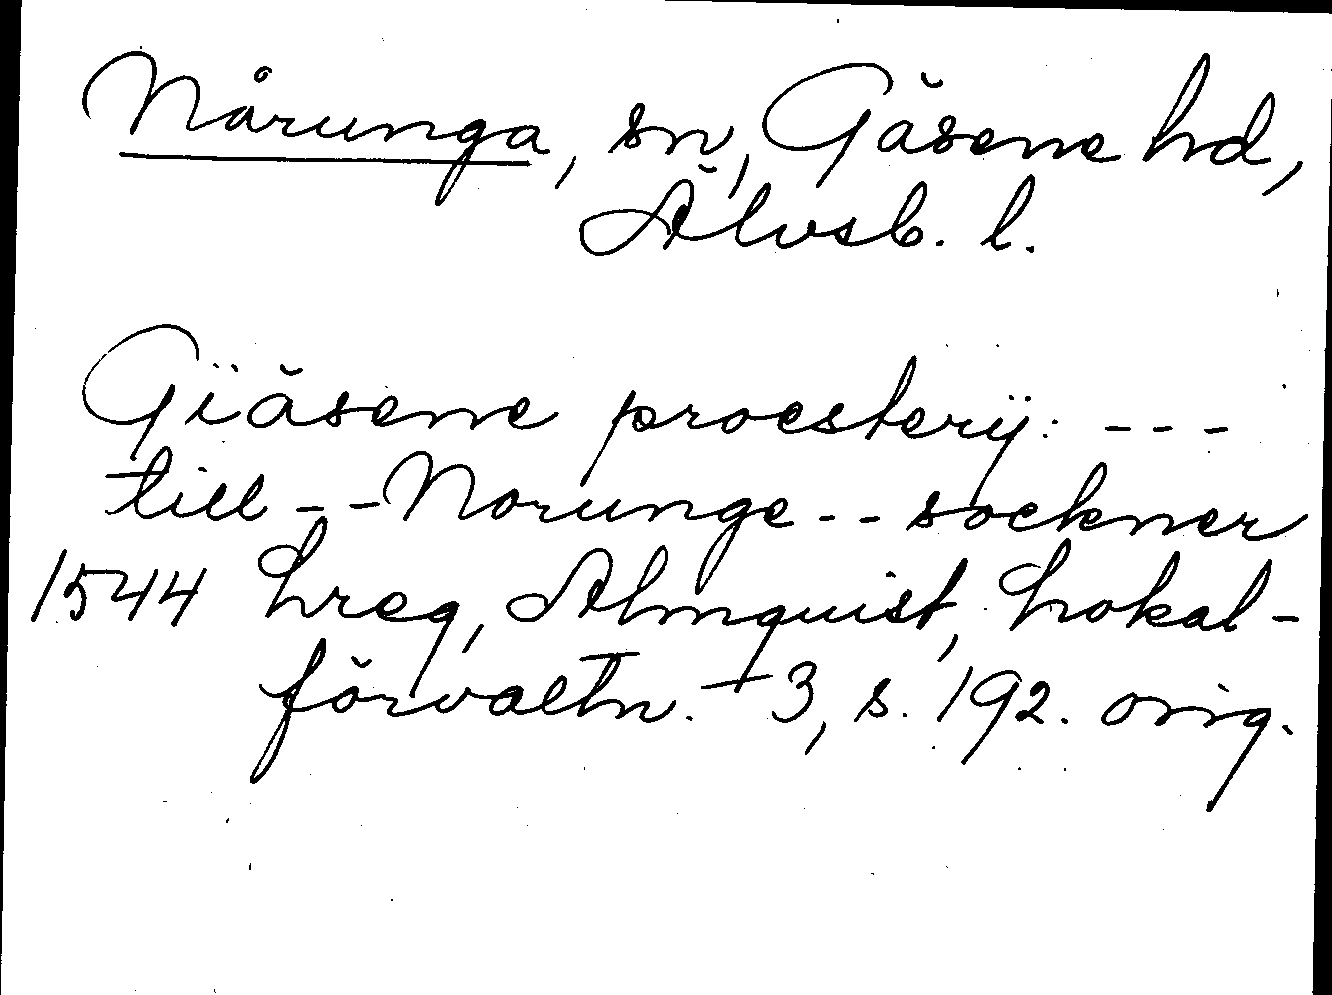 Nårunga, sn, Gäsene hd,
Älvsb. l.
Giäsene proesterij: ---
till -- Norunge -- sockner
1544 Lreg, Almquist, Lokal-
förvaltn. 3, s. 192. orig.